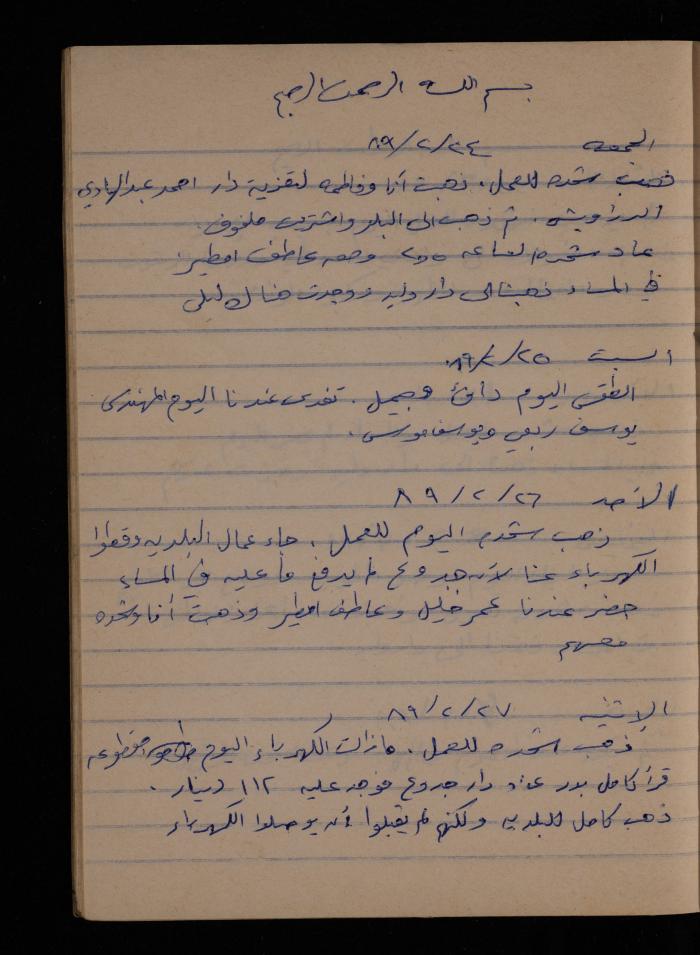 بسم الله الرحمن الرحيم
الجمعه ٨٩/٢/٢٤
ذهب شحده للعمل. ذهبت أنا وفاطمه لتعزية دار احمد عبد الهادي
الدراويش. ثم ذهب الى البلد واشتريت ملفوف.
عاد شحده الساعه ٢٥٥ ومعه عاطف امطير.
في المساء ذهبنا الى دار وليد ووجدت هناك ليلى
السبت ٨٩/٢/٢٥
الطقس اليوم دافئ وجميل. تغدى عندنا اليوم المهندس
يوسف ربعي ويوسف موسى.
الأحد ٨٩/٢/٢٦
ذهب شحده اليوم للعمل. جاء عمال البلديه وقطعوا
الكهرباء عنا لأنه جدوع لم يدفع ما عليه في المساء
حضر عندنا عمر خليل وعاطف امطير وذهبت أنا وشحده
معهم
الإثنين ٨٩/٢/٢٧
ذهب شحده للعمل. مازالت الكهرباء اليوم مقطوعه
قرأ كامل بدر عداد دار جدوع فوجد عليه ١١٢ دينار.
ذهب كامل للبلديه ولكنهم لم يقبلوا أن يوصلوا الكهرباء